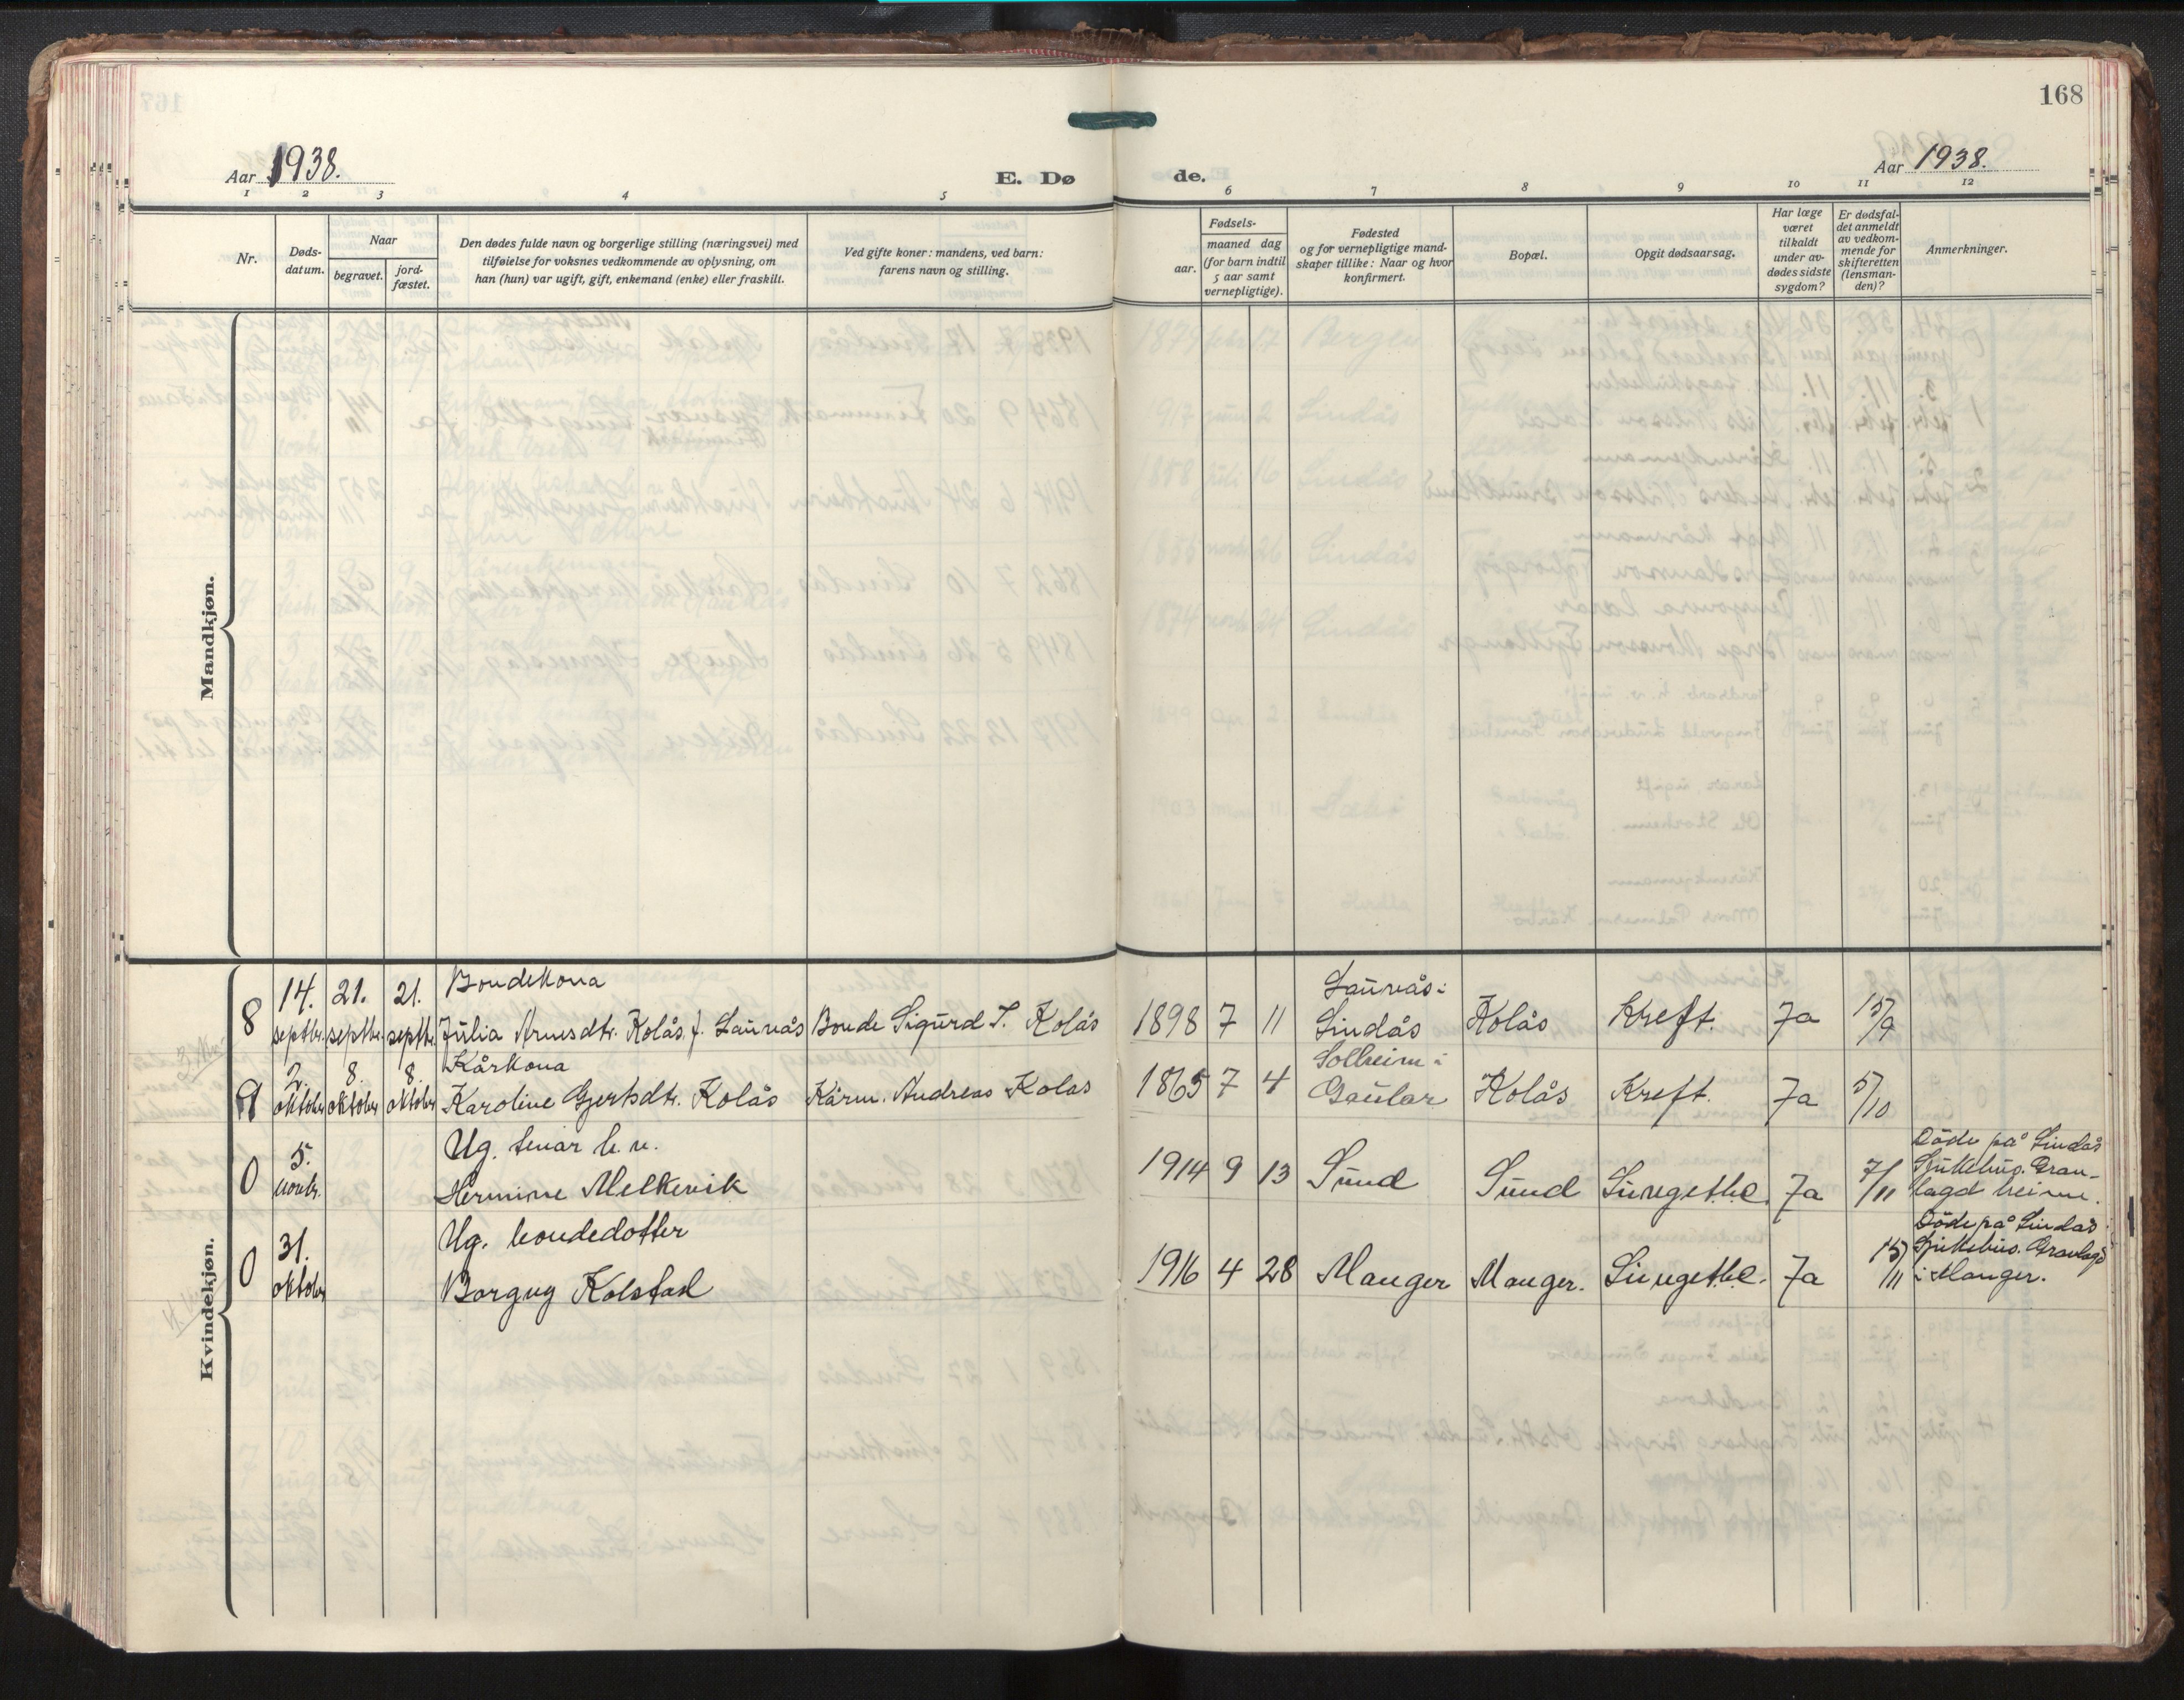 168
Aar 1938.
E. Dø
de.
Aar 1938.
1 2 3 4 5 6 7 8 9 10 11 12
Nr.
Døds-
datum.
Naar
begravet.
jord-
fæstet.
Den dødes fulde navn og borgerlige stilling (næringsvei) med
tilføielse for voksnes vedkommende av oplysning, om
han (hun) var ugift, gift, enkemand (enke) eller fraskilt.
Ved gifte koner: mandens, ved barn:
farens navn og stilling.
Fødsels-
aar.
maaned dag
(for barn indtil
5 aar samt
vernepligtige).
Fødested
og for vernepligtige mand-
skaper tillike: Naar og hvor
konfirmert.
Bopæl.
Opgit dødsaarsag.
Har læge
været
tilkaldt
under av-
dødes sidste
sygdom?
Er dødsfal-
det anmeldt
av vedkom-
mende for
skifteretten
(lensman-
den)?
Anmerkninger.
Mandkjøn.
Kvindekjøn.
14. 21. 21. Bondekona Saurvås i
8 septbr. septbr. septbr. Julia Arnesdtr. Kolås f. Saurvås Bonde Sigurd S. Kolås 1898 7 11 Lindås Kolås Kreft. Ja 15/9
2. 8. 8. Kårkona Solheim i
9 oktober oktober oktober Karoline Gjertsdtr. Kolås Kårm. Andreas Kolås 1865 7 4 Gaular Kolås Kreft. Ja 5/10
5. Ug. tenar h. v. Döde på Lindås
0 novbr. Hermine Melkevik 1914 9 13 Sund Sund Lungetbc. Ja 7/11 Sjukehus. Grav-
lagd heime.
31. Ug. bondedotter Döde på Lindås
0 oktober Borgny Kolstad 1916 4 28 Manger Manger. Lungetbc. Ja 15/11 Sjukehus. Gravlagd
i Manger.